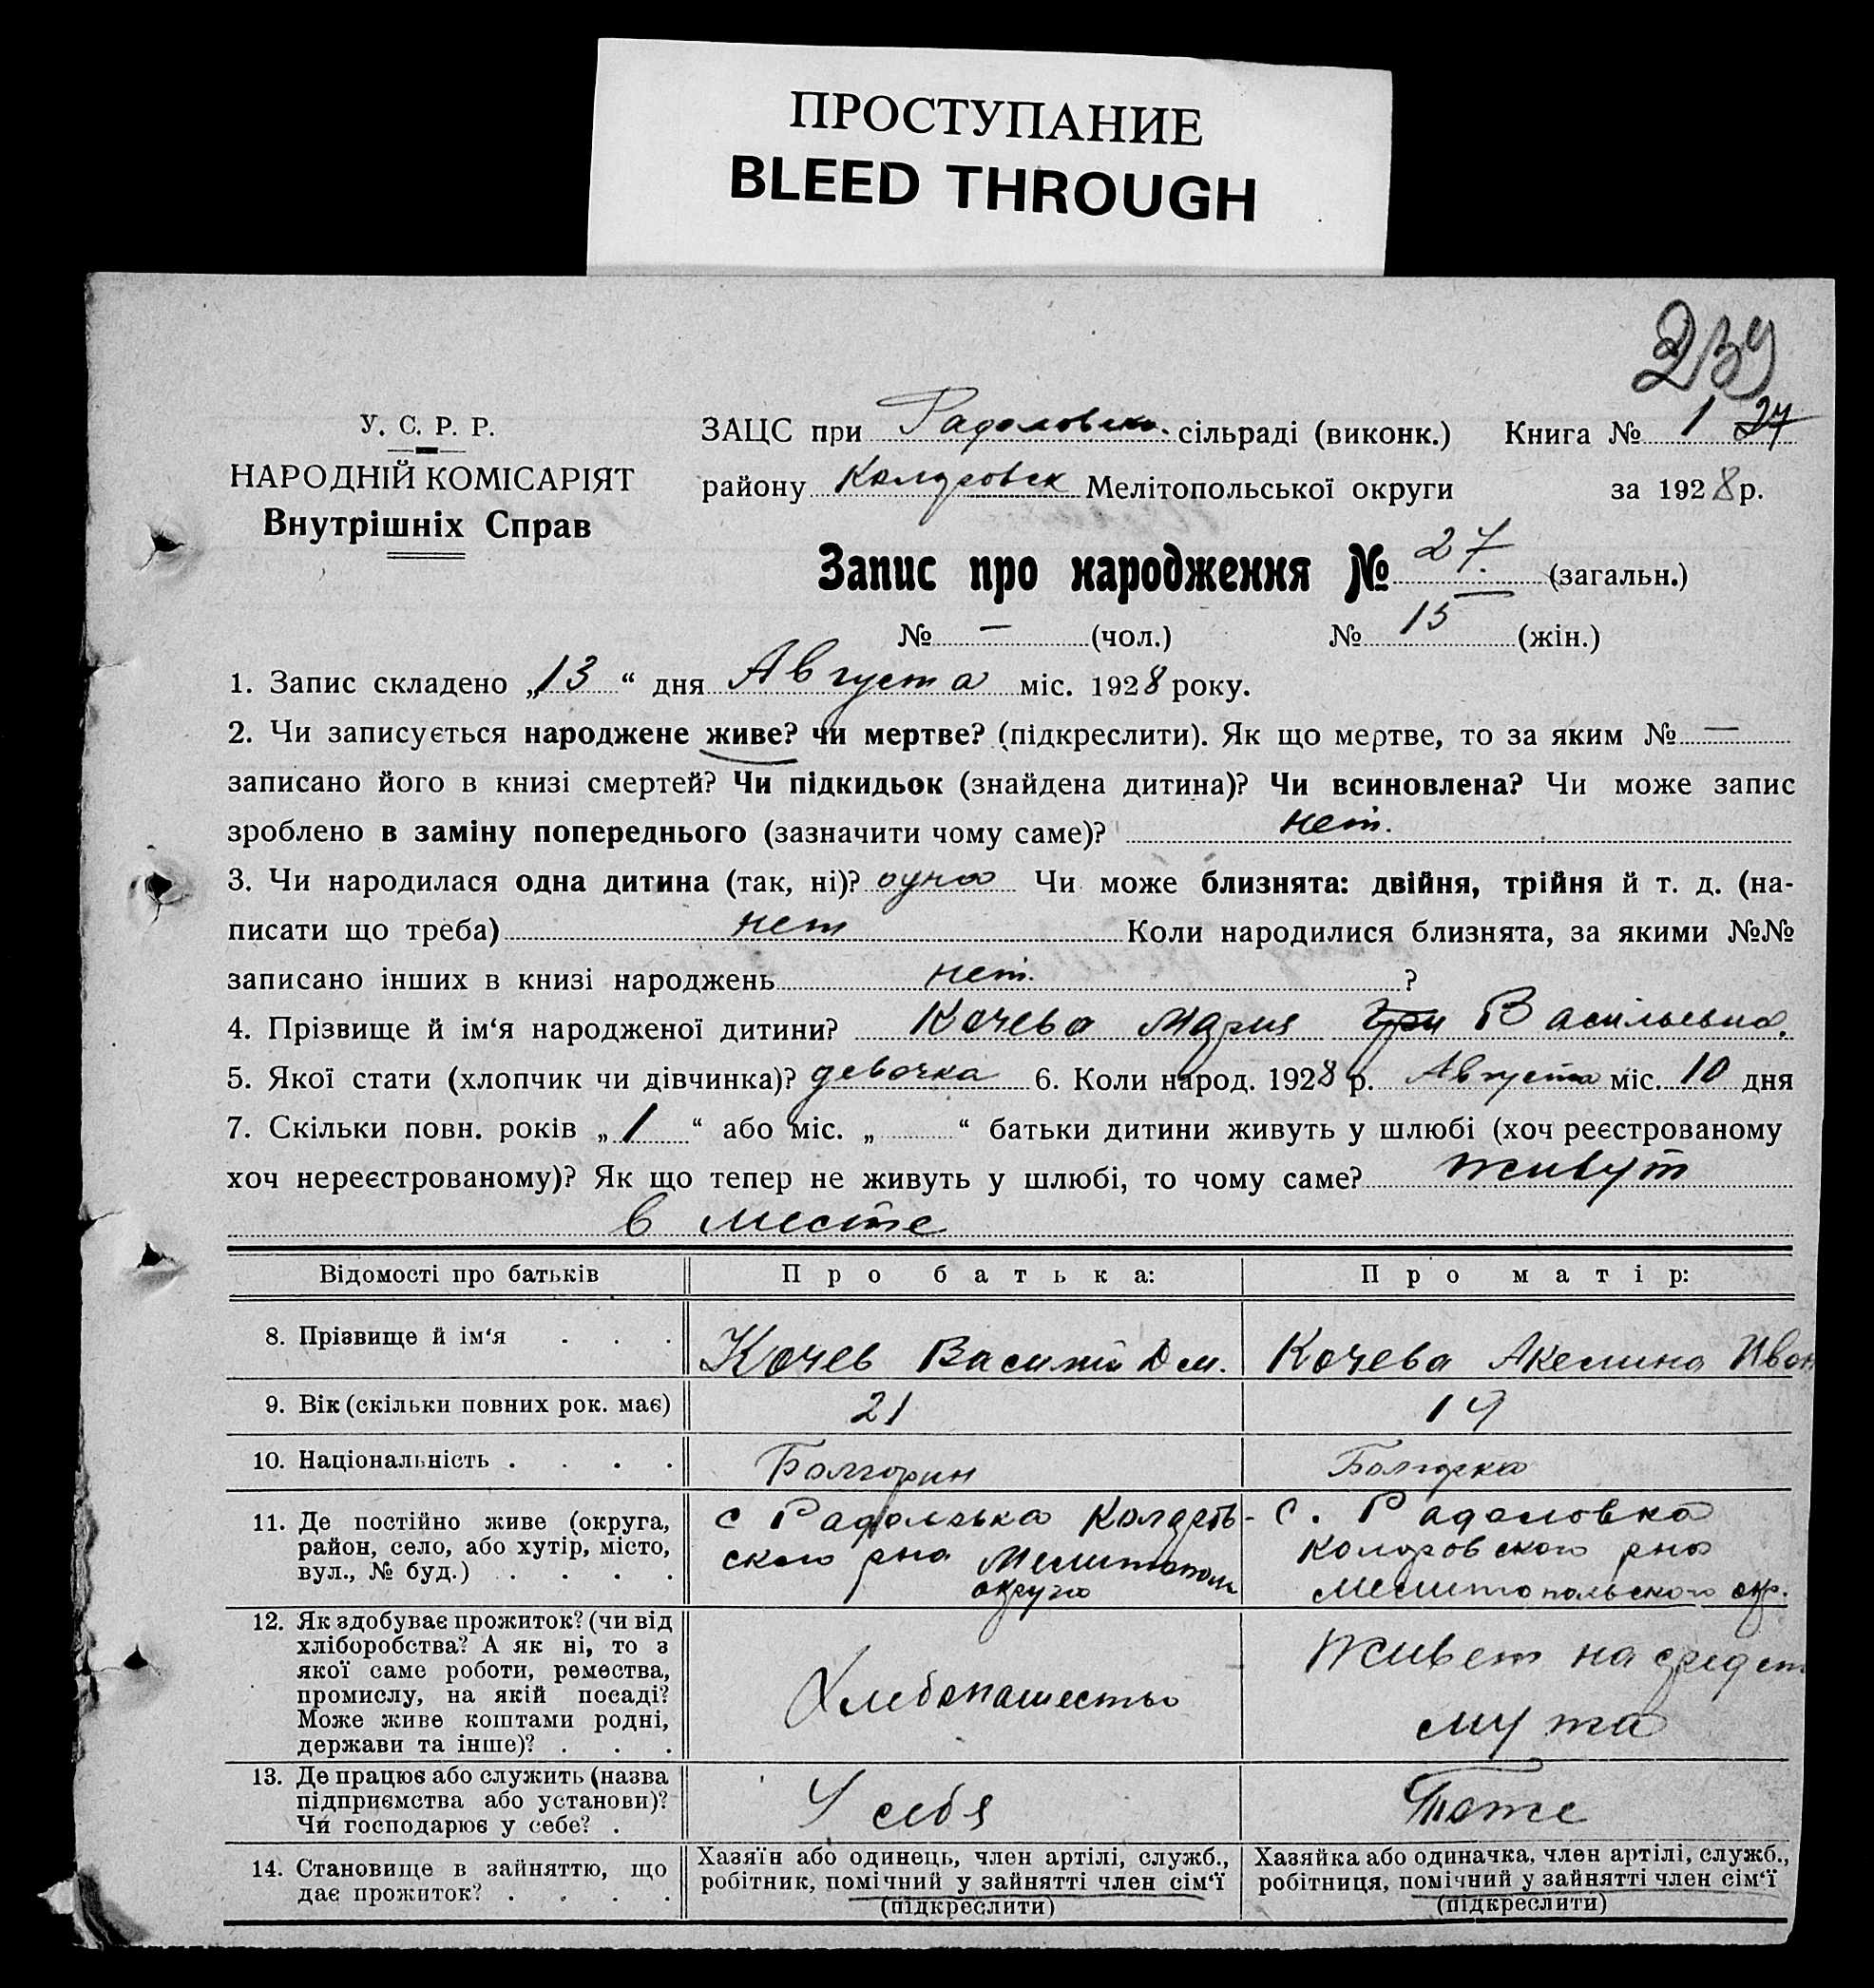 ПРОСТУПАНИЕ
BLEED THROUGH
239
У. С. Р. Р.
НАРОДНІЙ КОМІСАРІЯТ
Внутрішніх Справ
ЗАЦС при Радоловск. сільраді (виконк.) Книга № 1 27
району Коларовск Мелітопольської округи за 1928 р.
Запис про народження № 27. (загальн.)
№ — (чол.) № 15 (жін.)
1. Запис складено „13“ дня Августа міс. 1928 року.
2. Чи записується народжене живе? чи мертве? (підкреслити). Як що мертве, то за яким № —
записано його в книзі смертей? Чи підкидьок (знайдена дитина)? Чи всиновлена? Чи може запис
зроблено в заміну попереднього (зазначити чому саме)? нет.
3. Чи народилася одна дитина (так, ні)? одна Чи може близнята: двійня, трійня й т. д. (на-
писати що треба) нет Коли народилися близнята, за якими №№
записано інших в книзі народжень нет. ?
4. Прізвище й ім‘я народженої дитини? Кочева Мария Васильевна.
5. Якої стати (хлопчик чи дівчинка)? девочка 6. Коли народ. 1928 р. Августа міс. 10 дня
7. Скільки повн. років „1“ або міс. „ “ батьки дитини живуть у шлюбі (хоч реєстрованому
хоч нереєстрованому)? Як що тепер не живуть у шлюбі, то чому саме? живут
в месте
Відомості про батьків Про батька: Про матір:
8. Прізвище й ім‘я . . . Кочев Василий Дм. Кочева Акемина Иван
9. Вік (скільки повних рок. має) 21 19
10. Національність . . . . Болгорин Болгорка
11. Де постійно живе (округа,
район, село, або хутір, місто,
вул., № буд.) . . . .
с Радоловка Коларов-
ского рна Мелитополь
округа
с. Радоловка
Коларовского рна
Мелитопольского окр.
12. Як здобуває прожиток? (чи від
хліборобства? А як ні, то з
якої саме роботи, ремества,
промислу, на якій посаді?
Може живе коштами родні,
держави та інше)? . . .
Хлебопашество
Живет на средст
мужа
13. Де працює або служить (назва
підприємства або установи)?
Чи господарює у себе? .
У себя
Тоже
14. Становище в зайняттю, що
дає прожиток? . . . .
Хазяїн або одинець, член артілі, служб.,
робітник, помічний у зайнятті член сім‘ї
(підкреслити)
Хазяйка або одиначка, член артілі, служб.,
робітниця, помічний у зайнятті член сім‘ї
(підкреслити)